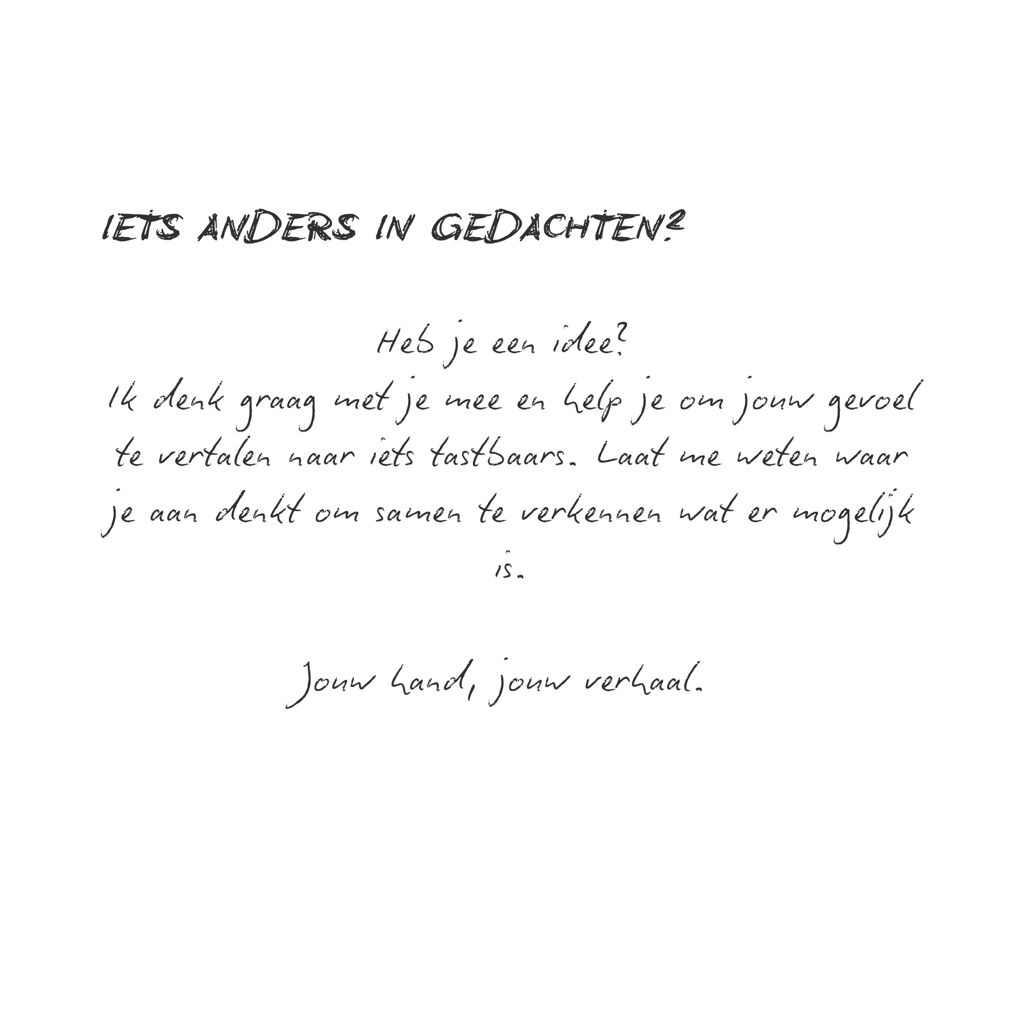 IETS ANDERS IN GEDACHTEN?
Heb je een idee?
Ik denk graag met je mee en help je om jouw gevoel
te vertalen naar iets tastbaars. Laat me weten waar
je aan denkt om samen te verkennen wat er mogelijk
is.
Jouw hand, jouw verhaal.